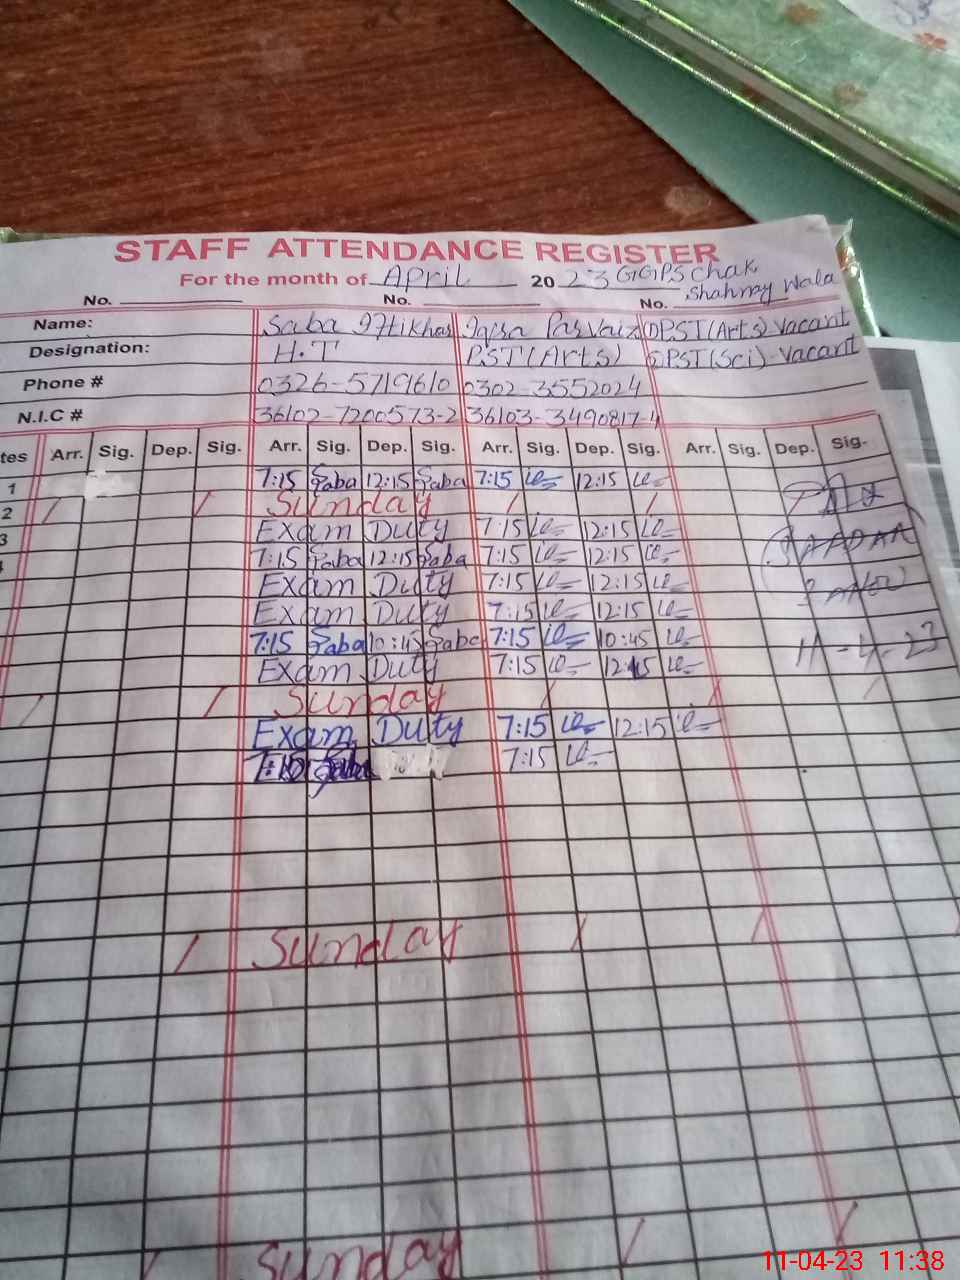 STAFF ATTENDANCE REGISTER
For the month of April 2023 GGPS Chak
Shahnay Wala
No. No. No.
Name: Saba Iftikhar Iqra Parvaiz ①PST(Arts) Vacant
Designation: H.T PST(Arts) ②PST(Sci)-Vacant
Phone # 0326-5719610 0302-3552024
N.I.C # 36102-7200573-2 36103-3490817-4
tes Arr. Sig. Dep. Sig. Arr. Sig. Dep. Sig. Arr. Sig. Dep. Sig. Arr. Sig. Dep. Sig.
1 7:15 Saba 12:15 Saba 7:15 12:15
2 Sunday
3 Exam Duty 7:15 12:15
7:15 Saba 12:15 Saba 7:15 12:15
Exam Duty 7:15 12:15
Exam Duty 7:15 12:15
7:15 Saba 10:45 Saba 7:15 10:45 11-4-23
Exam Duty 7:15 12:15
Sunday
Exam Duty 7:15 12:15
Saba 7:15
Sunday
Sunday
11-04-23 11:38